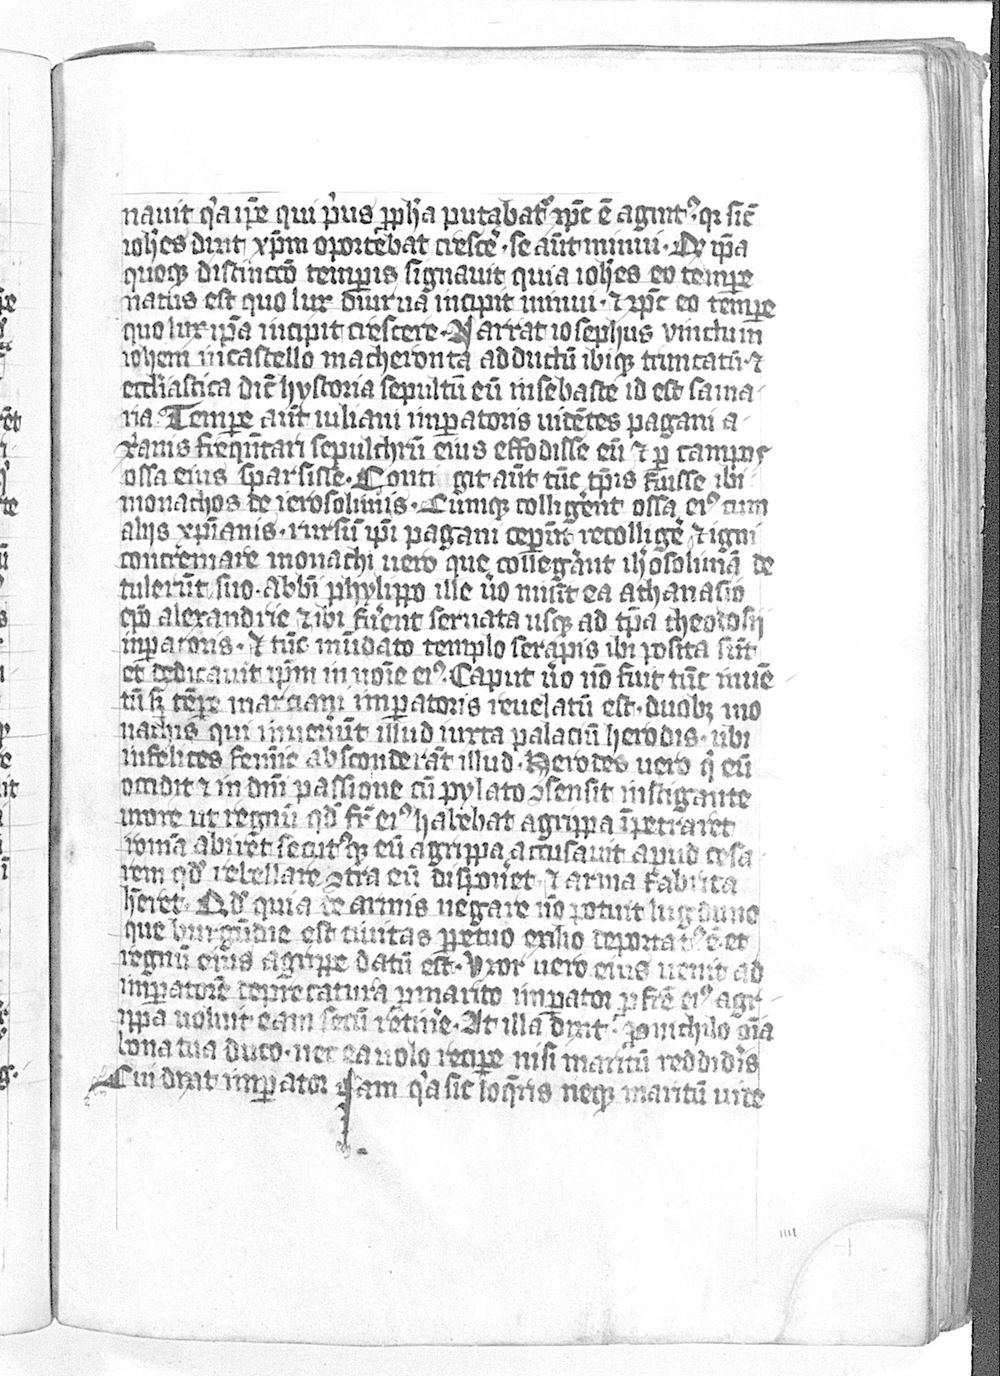 nauit q'a ip̄e qui p'us ꝓph̄a putabat᷒ xp̄c ē agnit᷒· qr sic̄
ioh̄es dixit xp̄m oportebat cresce᷒· se aūt minui· Qr̄ ip̄a
quoqꝫ distinccō tempis signauit quia ioh̄es eo tempe
natus est quo lux diurna incipit minui· ⁊ xp̄c eo tempe
quo lux ip̄a incipit crescere· Narrat iosephus vinctum
ioh̄em in castello macheronta adductū ibiqꝫ truncatū· ⁊
eccl̄iastica dic̄ hystoria sepultū eū in sebaste id est sama
ria· Tempe aūt iuliani impatoris uidētes pagani a
xp̄anis freqn̄tari sepulchrū eius effodisse eū ⁊ p campos
ossa eius sparsisse· Conti git aūt tūc tp̄is fuisse ibi
monachos de ierosolimis· Cumqꝫ colligent ossa ei᷒ cum
alijs xp̄ianis· rursū ip̄i pagani ceper̄t recollige᷒ ⁊ igni
concremare monachi uero que collegant ih̄osolimā de
tulerūt suo· abbi phylippo ille ūo misit ea athanasio
ep̄o alexandrie ⁊ ibi fuēnt seruata usqꝫ ad tp̄a theodosij
inpatoris· ⁊ tūc mūdato templo serapis ibi posita sūt
et dedicauit ip̄m in noīe ei᷒· Caput ūo nō fuit tūc inuē
tū sꝫ tēpe marciani impatoris reuelatū est· duobꝫ mo
nachis qui inuenūt illud iuxta palaciū herodis· ubi
infelices femīe absconderāt illud· Herodes uero q' eū
occidit ⁊ in dn̄i passione cū pylato ꝯsensit instigante
uxore ut regnū qd' fr̄ ei᷒ habebat agrippa īpetraret
romā abiret secut᷒qꝫ eū agrippa accusauit apud cesa
rem qd' rebellare ꝯtra eū disponet· ⁊ arma fabrita
h̄eret· Qd' quia de armis negare nō potuit lugduno
que burgūdie est ciuitas ꝑpetuo exilio deportat᷒ ē et
regnū eius agrippe datū est· Vxor uero eius uenit ad
impatorē deprecatura p marito impator p fr̄e ei᷒ agr
ippa uoluit eam secū retine᷒· At illa dixit· Pro nichilo om̄ia
bona tua duco· nec ea uolo recipe nisi maritū reddideris
Cui dixit impator Iam q'a sic loq̄ris neqꝫ maritū uite
ıııı